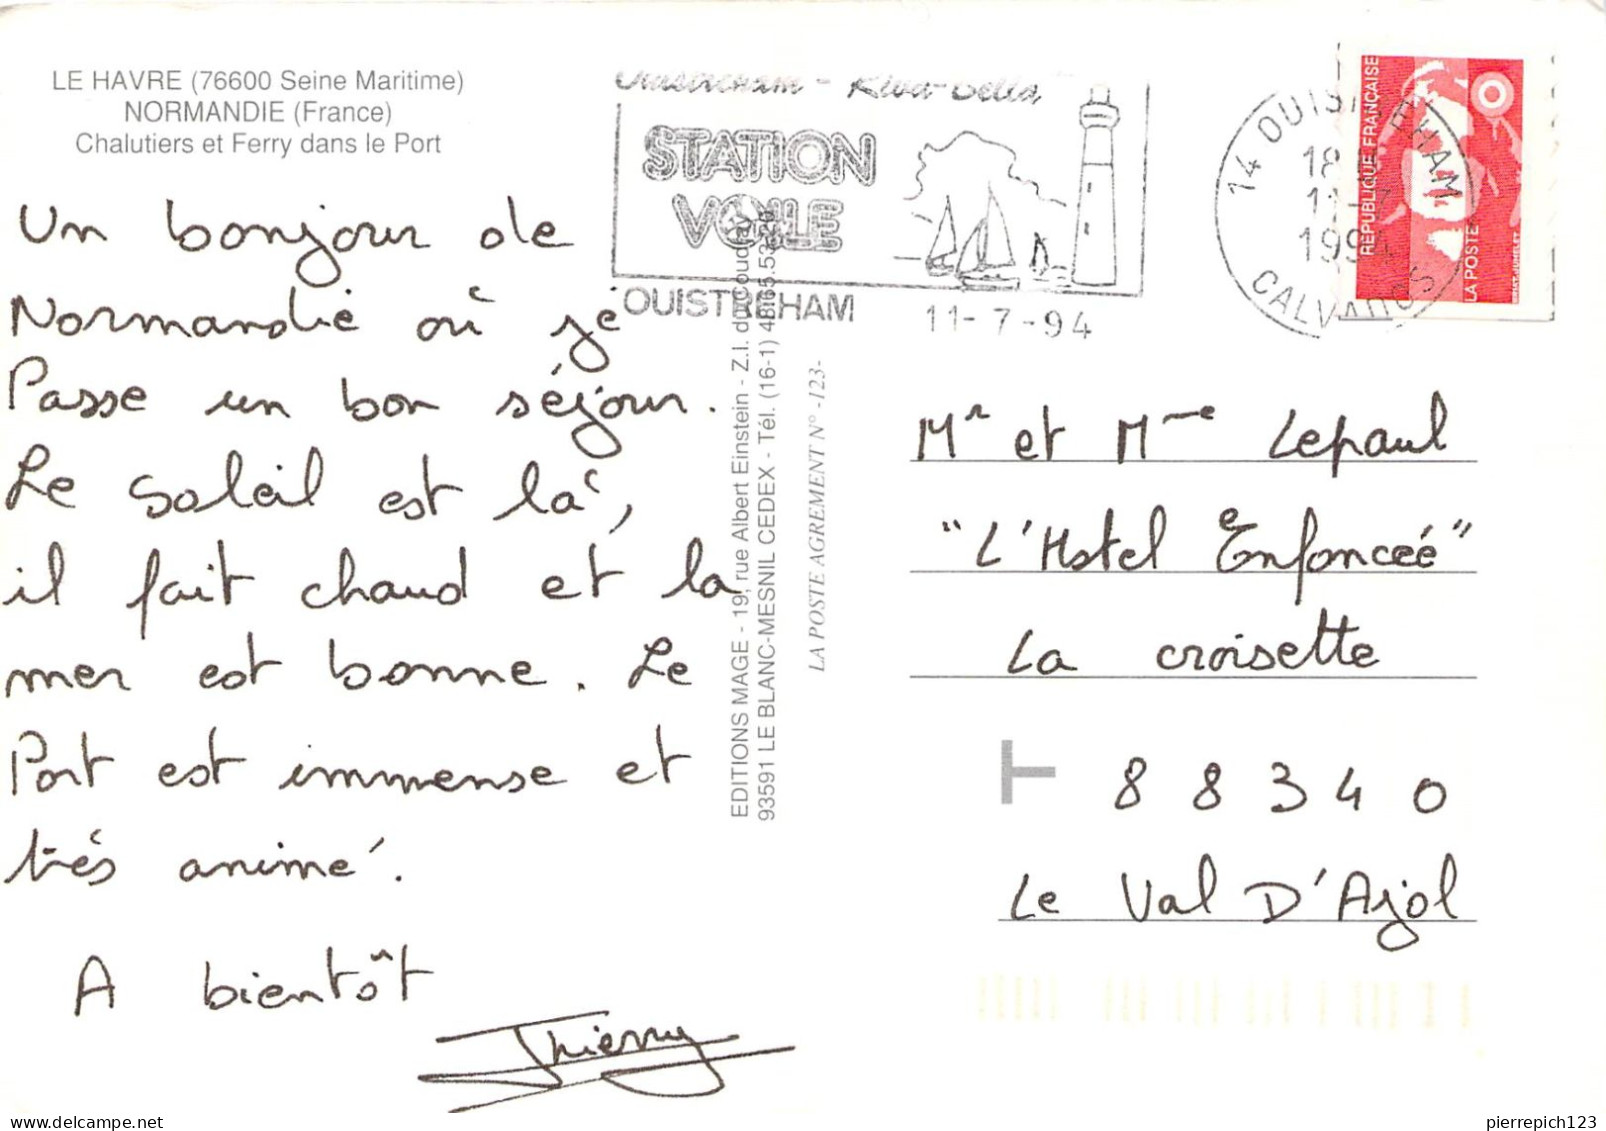 LE HAVRE (76600 Seine Maritime)
NORMANDIE (France)
Chalutiers et Ferry dans le Port
Un bonjour de
Normandie où je
Passe un bon séjour.
Le soleil est là,
il fait chaud et la
mer est bonne. Le
Port est immense et
très animé.
A bientôt
Thierry
Ouistreham - Riva-Bella
STATION
VOILE
OUISTREHAM
11-7-94
14 OUISTREHAM
18
11-7
1994
CALVADOS
REPUBLIQUE FRANÇAISE
LA POSTE
EDITIONS MAGE - 19, rue Albert Einstein - Z.I. du Coudray
93591 LE BLANC-MESNIL CEDEX - Tél. (16-1) 4865.53.56
LA POSTE AGREMENT N° -123-
Mr et Mme Lepaul
"L'Hotel Enfoncéé"
La croisette
T 88340
Le Val D'Ajol
delcampe.net
pierrepich123